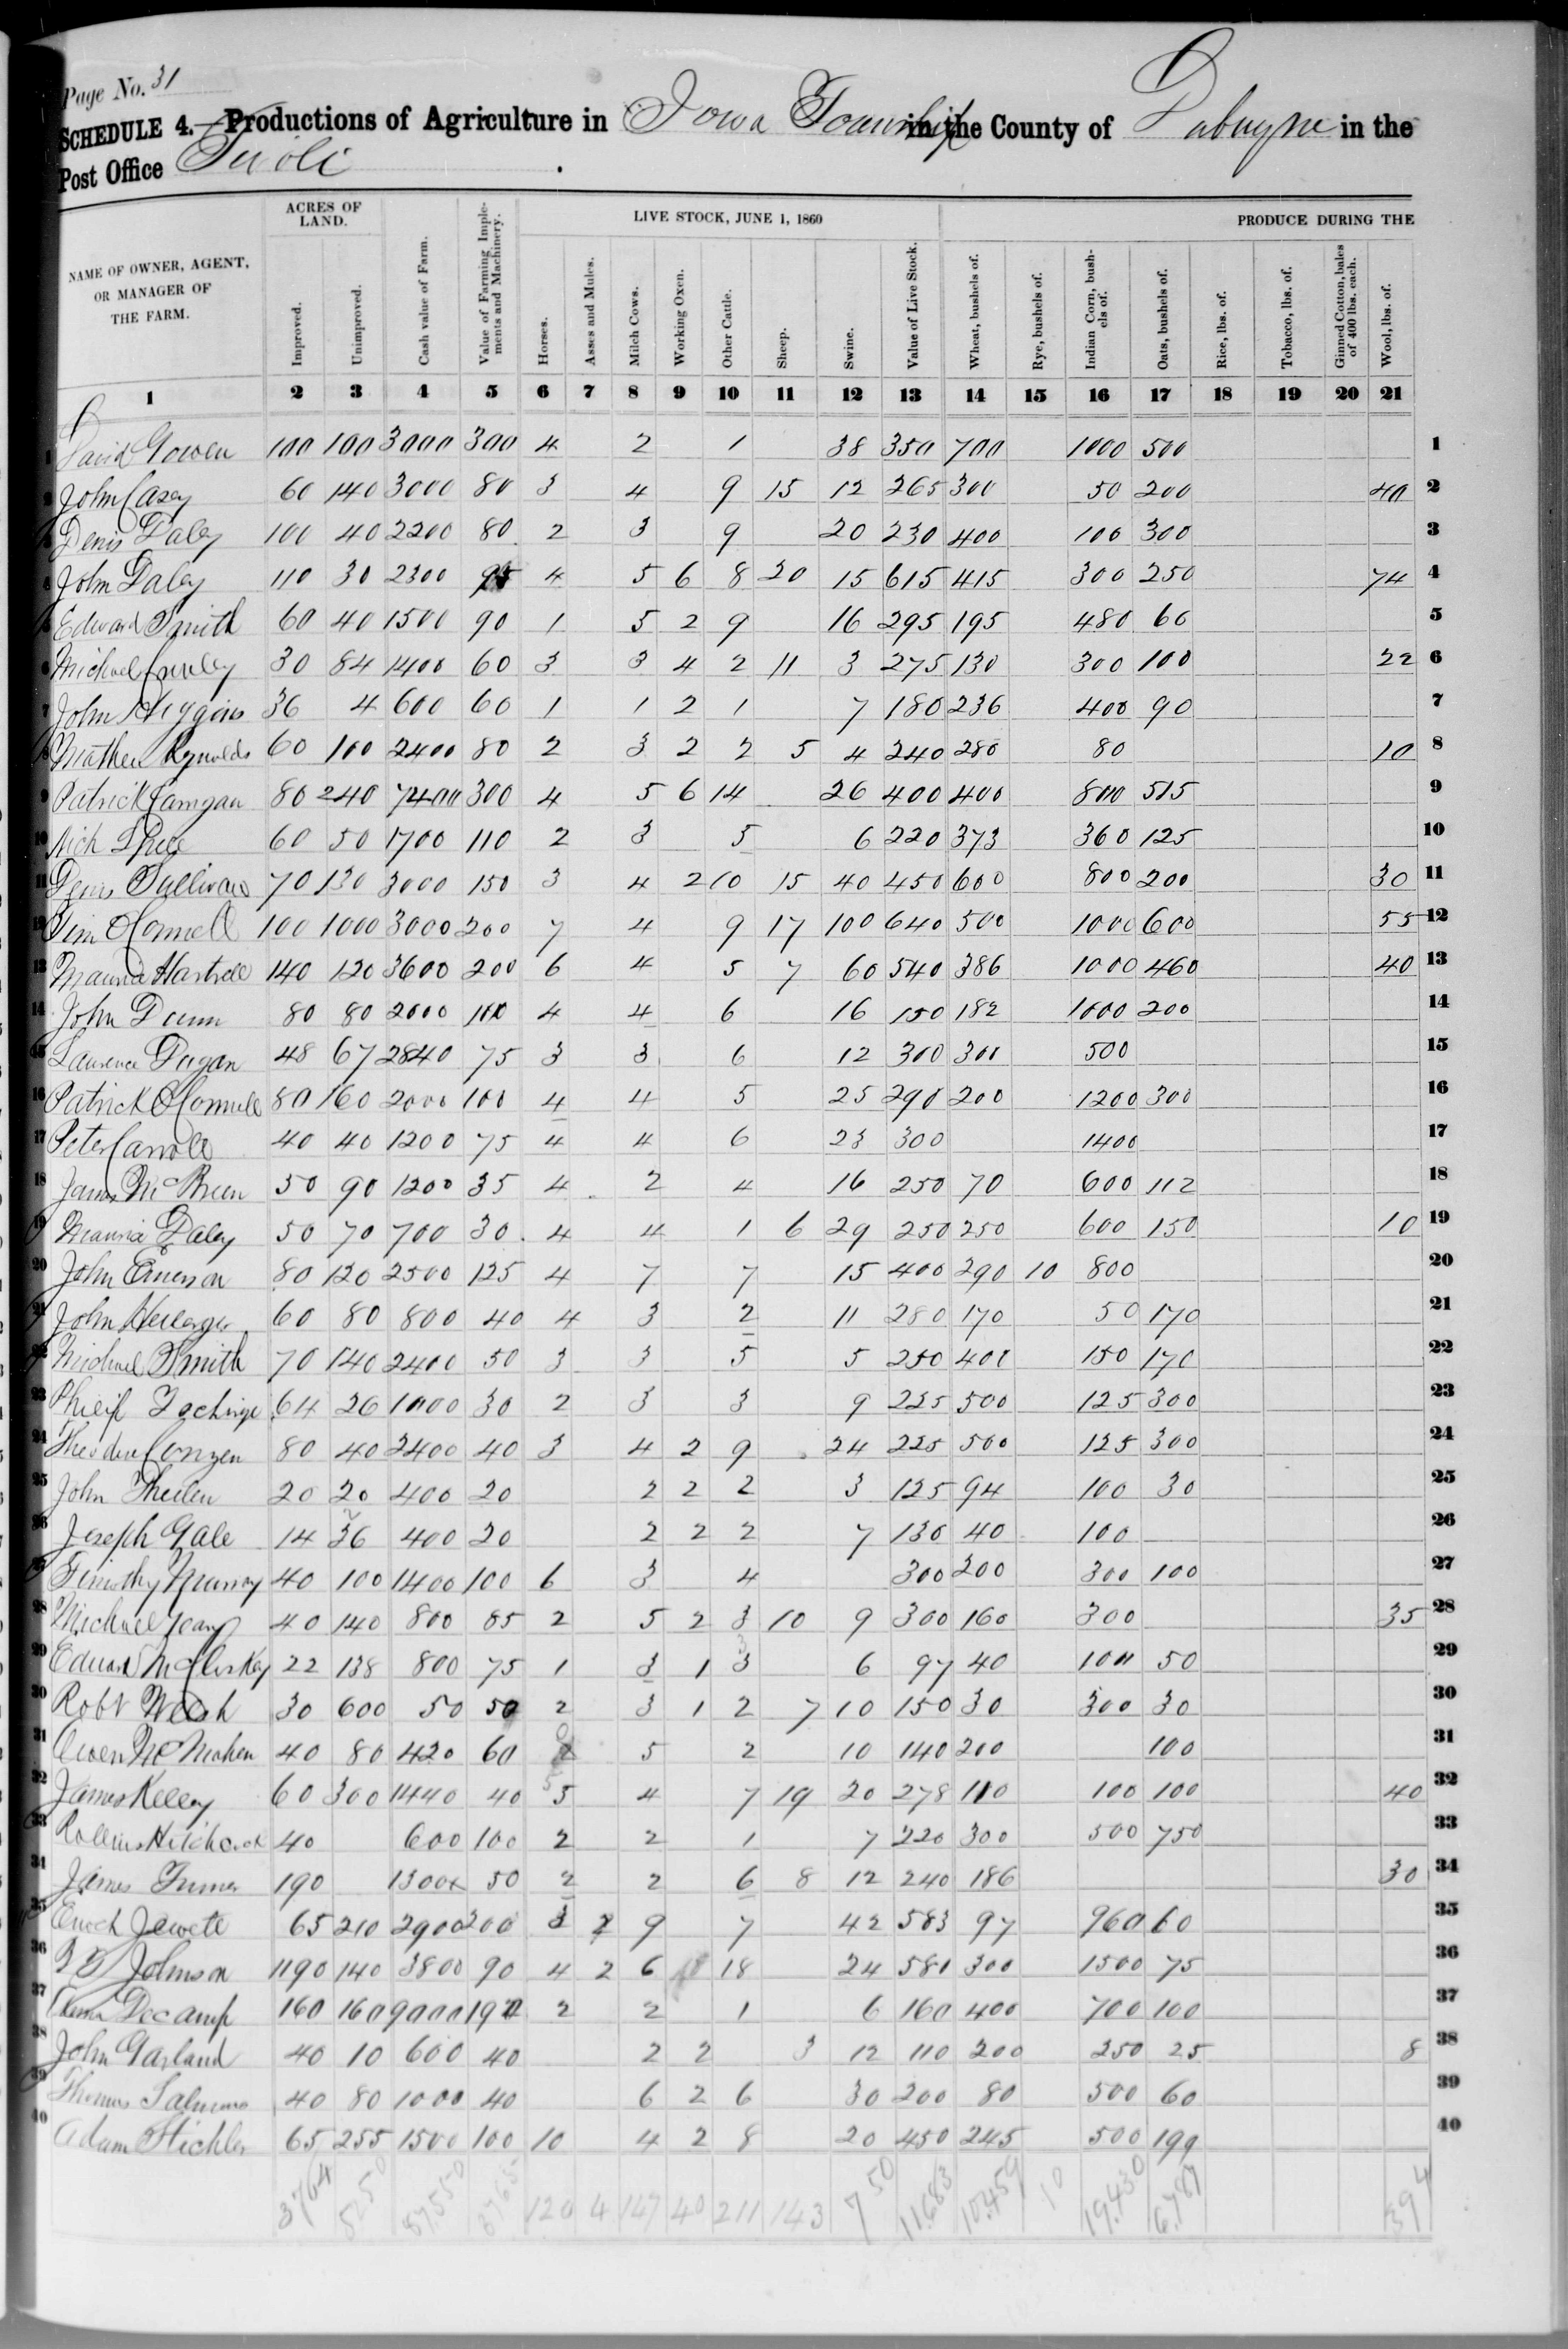 Page No. 31
SCHEDULE 4.—Productions of Agriculture in Iowa Township in the County of Dubuque in the
Post Office Tivoli .
NAME OF OWNER, AGENT, OR MANAGER OF THE FARM. ACRES OF LAND. Improved. Unimproved. Cash value of Farm. Value of Farming Implements and Machinery. LIVE STOCK, JUNE 1, 1860 Horses. Asses and Mules. Milch Cows. Working Oxen. Other Cattle. Sheep. Swine. Value of Live Stock. PRODUCE DURING THE Wheat, bushels of. Rye, bushels of. Indian Corn, bushels of. Oats, bushels of. Rice, lbs. of. Tobacco, lbs. of. Ginned Cotton, bales of 400 lbs. each. Wool, lbs. of.
1 2 3 4 5 6 7 8 9 10 11 12 13 14 15 16 17 18 19 20 21
1 David Gowen 100 100 3000 300 4 2 1 38 350 700 1000 500 1
2 John Casey 60 140 3000 80 3 4 9 15 12 265 300 50 200 40 2
3 Denis Daley 100 40 2200 80 2 3 9 20 230 400 100 300 3
4 John Daley 110 30 2300 95 4 5 6 8 20 15 615 415 300 250 74 4
5 Edward Smith 60 40 1500 90 1 5 2 9 16 295 195 480 60 5
6 Michael 30 84 1400 60 3 3 4 2 11 3 275 130 300 100 22 6
7 John Higgins 36 4 600 60 1 1 2 1 7 180 236 400 90 7
8 Mathew Rynolds 60 100 2400 80 2 3 2 2 5 4 240 280 80 10 8
9 Patrick 80 240 7400 300 4 5 6 14 26 400 400 800 515 9
10 Nich 60 50 1700 110 2 3 5 6 220 373 360 125 10
11 Denis Sullivan 70 130 3000 150 3 4 2 10 15 40 450 600 800 200 30 11
12 Tim OConnell 100 1000 3000 200 7 4 9 17 100 640 500 1000 600 55 12
13 Maurice 140 120 3600 200 6 4 5 7 60 540 386 1000 460 40 13
14 John Dunn 80 80 2000 100 4 4 6 16 150 182 1000 200 14
15 Laurence Dugan 48 67 2840 75 3 3 6 12 300 300 500 15
16 Patrick OConnell 80 160 2000 100 4 4 5 25 290 200 1200 300 16
17 Peter Carroll 40 40 1200 75 4 4 6 23 300 1400 17
18 James McBreen 50 90 1200 35 4 2 4 16 250 70 600 112 18
19 Maurice Daley 50 70 700 30 4 4 1 6 29 250 250 600 150 10 19
20 John Emerson 80 120 2500 125 4 7 7 15 400 290 10 800 20
21 John 60 80 800 40 4 3 2 11 280 170 50 170 21
22 Michael Smith 70 140 2400 50 3 3 5 5 250 400 150 170 22
23 Philip 64 26 1000 30 2 3 3 9 225 500 125 300 23
24 Theodore Conzen 80 40 2400 40 3 4 2 9 24 225 500 125 300 24
25 John Theilen 20 20 400 20 2 2 2 3 125 94 100 30 25
26 Joseph Gale 14 36 400 20 2 2 2 7 130 40 100 26
27 Timothy Murray 40 100 1400 100 6 3 4 300 200 300 100 27
28 Michael 40 140 800 85 2 5 2 3 10 9 300 160 300 35 28
29 Edward McCloskey 22 138 800 75 1 3 1 3 6 97 40 100 50 29
30 Robt Welsh 30 600 50 50 2 3 1 2 7 10 150 30 300 30 30
31 Owen McMahen 40 80 420 60 5 2 10 140 200 100 31
32 James Kelley 60 300 1440 40 5 4 7 19 20 278 110 100 100 40 32
33 Rollins Hitchcock 40 600 100 2 2 1 7 220 300 500 750 33
34 James Turner 190 1300 50 2 2 6 8 12 240 186 30 34
35 Enoch Jewett 65 210 2900 200 3 2 9 7 42 583 97 960 60 35
36 Johnson 1190 140 3800 90 4 2 6 18 24 580 300 1500 75 36
37 Decamp 160 160 9000 190 2 2 1 6 160 400 700 100 37
38 John Garland 40 10 600 40 2 2 3 12 110 200 250 25 8 38
39 Thomas 40 80 1000 40 6 2 6 30 200 80 500 60 39
40 Adam Stichler 65 255 1500 100 10 4 2 8 20 450 245 500 199 40
3764 5250 87,550 3765 120 4 147 40 211 143 750 11,683 10,459 10 19,430 6,787 394